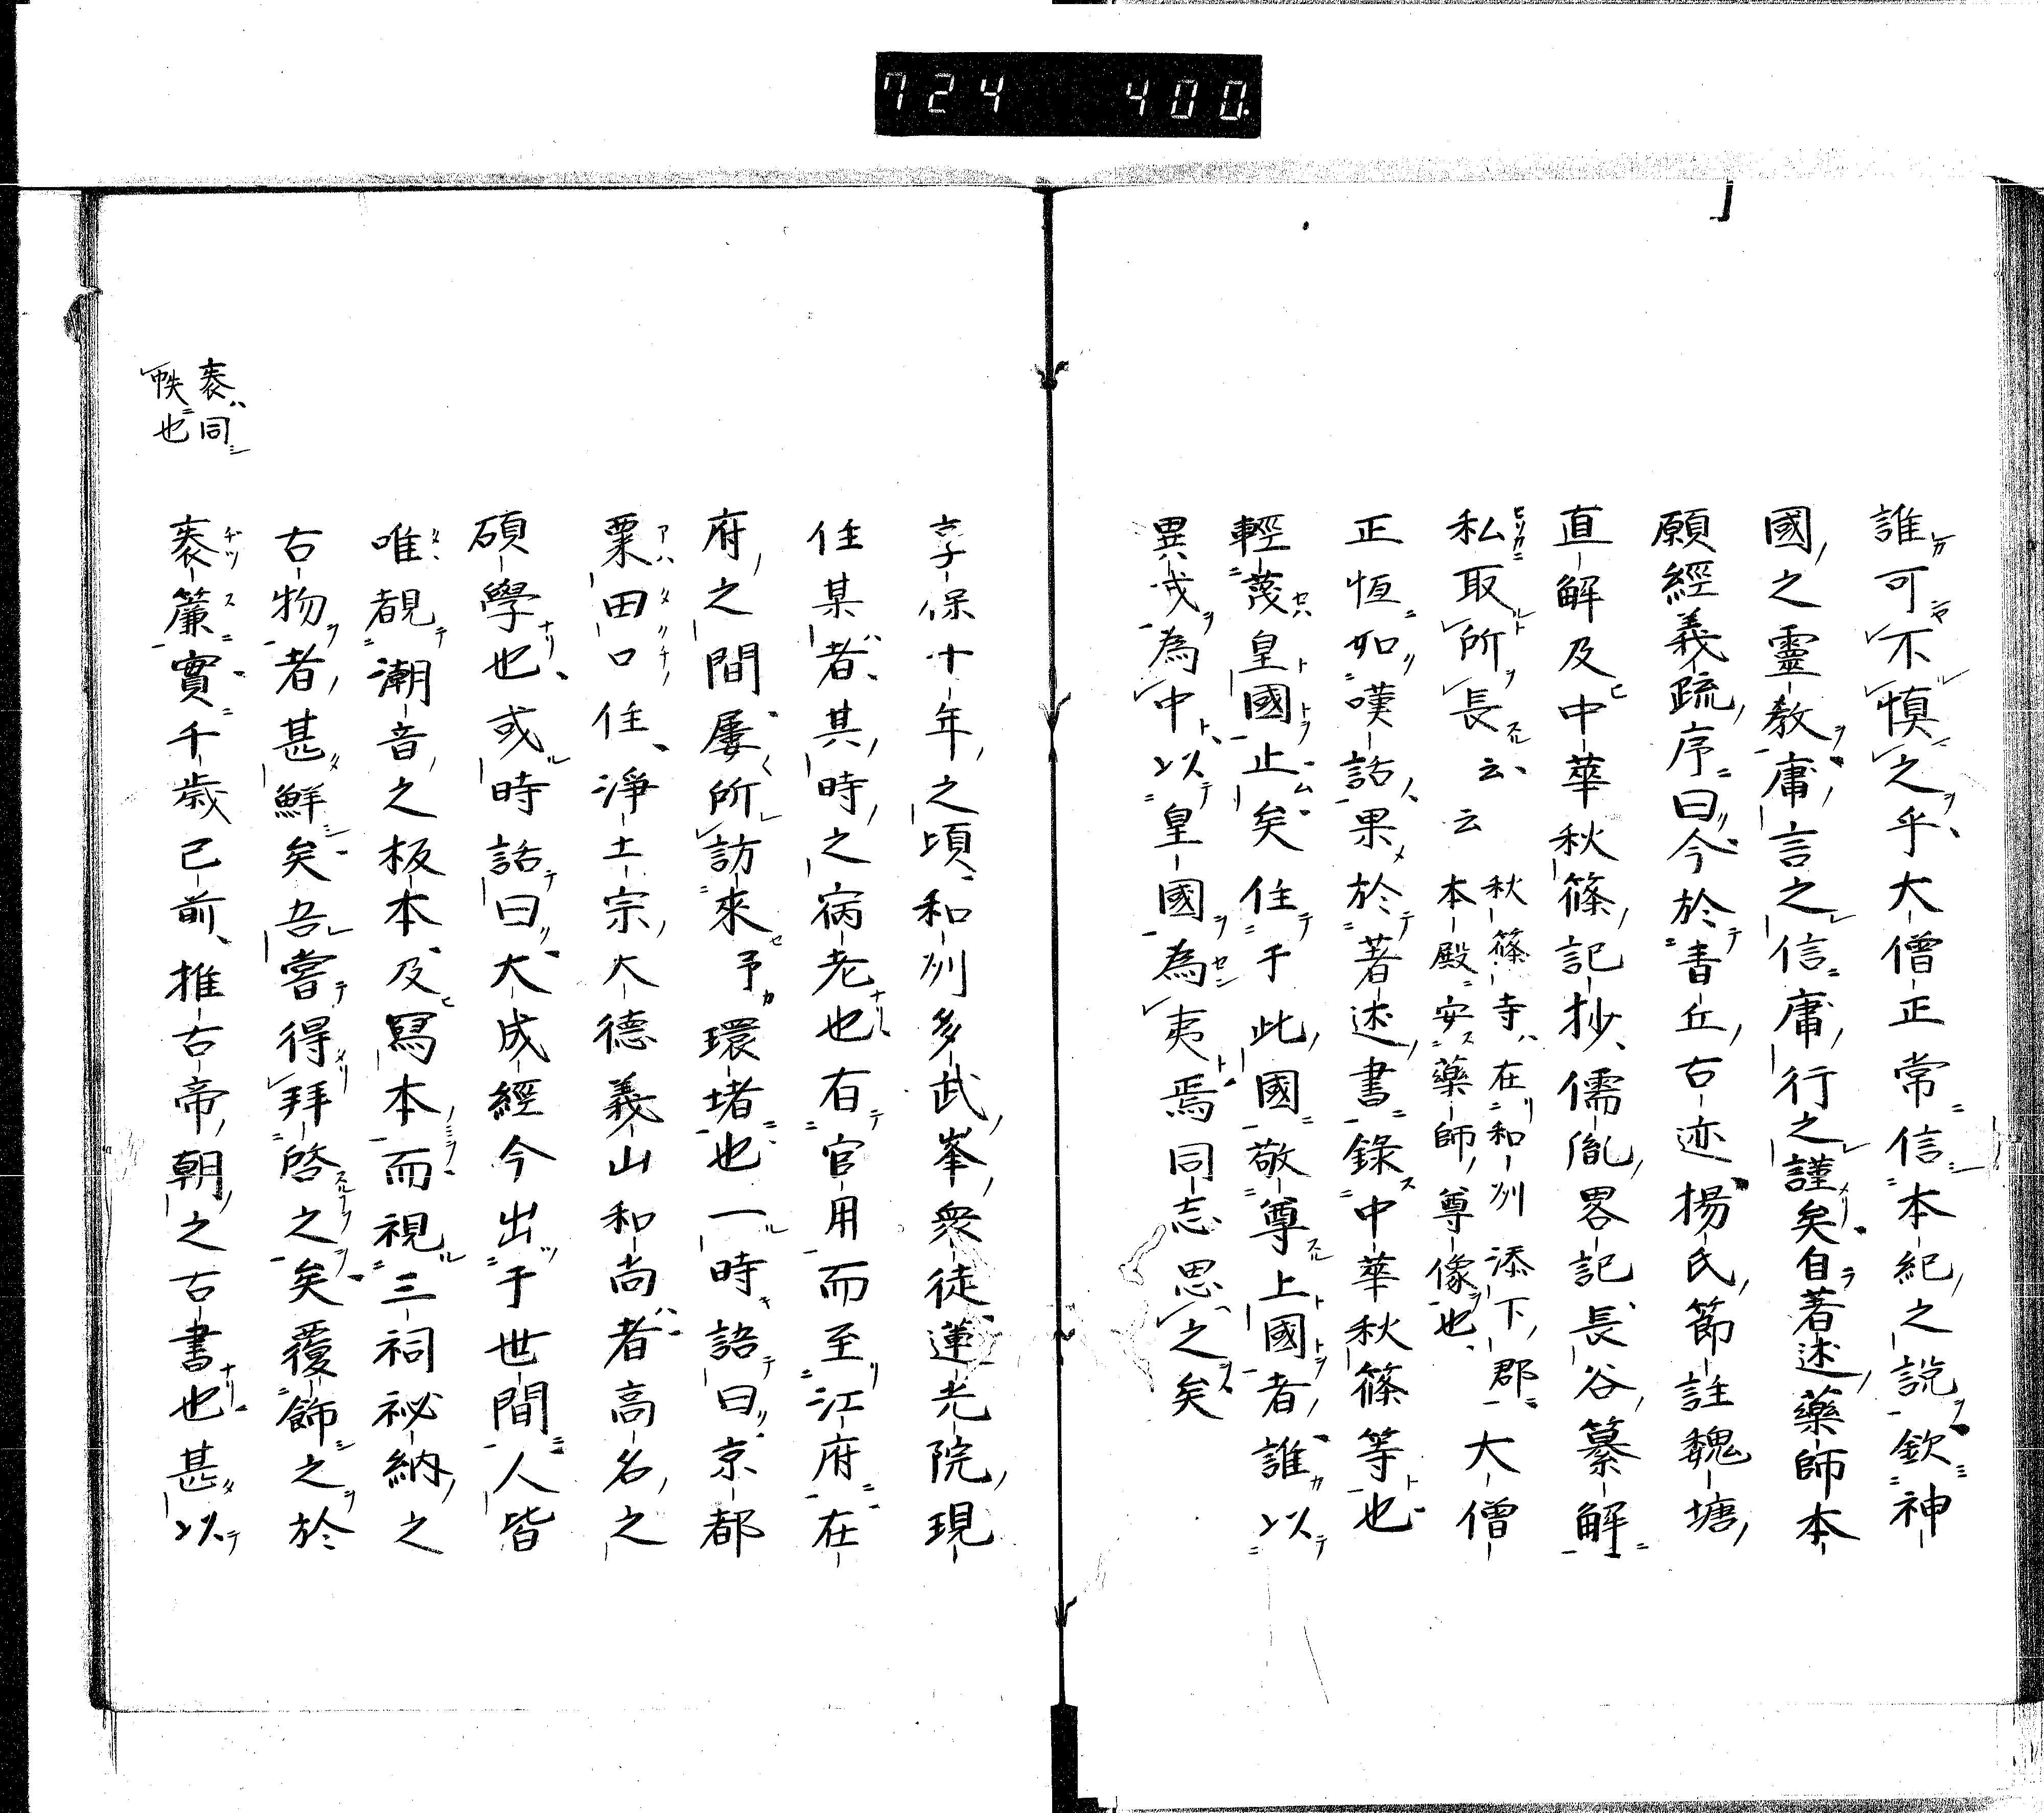 724 400.
誰可不慎之乎大僧正常信本紀之說欽神
國之靈教庸言之信庸行之謹矣自著述藥師本
願經義疏序曰今於書丘古迹揚氏節註魏塘
直解及中華秋篠記抄儒胤畧記長谷纂解
私取所長云云
秋篠寺在和州添下郡
本殿安藥師尊像也
大僧
正恒如嘆話果於著述書錄中華秋篠等也
輕蔑皇國止矣住于此國敬尊上國者誰以
異戎為中以皇國為夷焉同志思之矣
享保十年之頃和州多武峯衆徒蓮光院現
住某者其時之病老也有官用而至江府在
府之間屢所訪來予環堵也一時語曰京都
粟田口住淨土宗大德義山和尚者高名之
碩學也或時話曰大成經今出于世間人皆
唯覩潮音之板本及寫本而視三祠祕納之
古物者甚鮮矣吾嘗得拜啓之矣覆飾之於
袠簾實千歲已前推古帝朝之古書也甚以
袠同
帙也